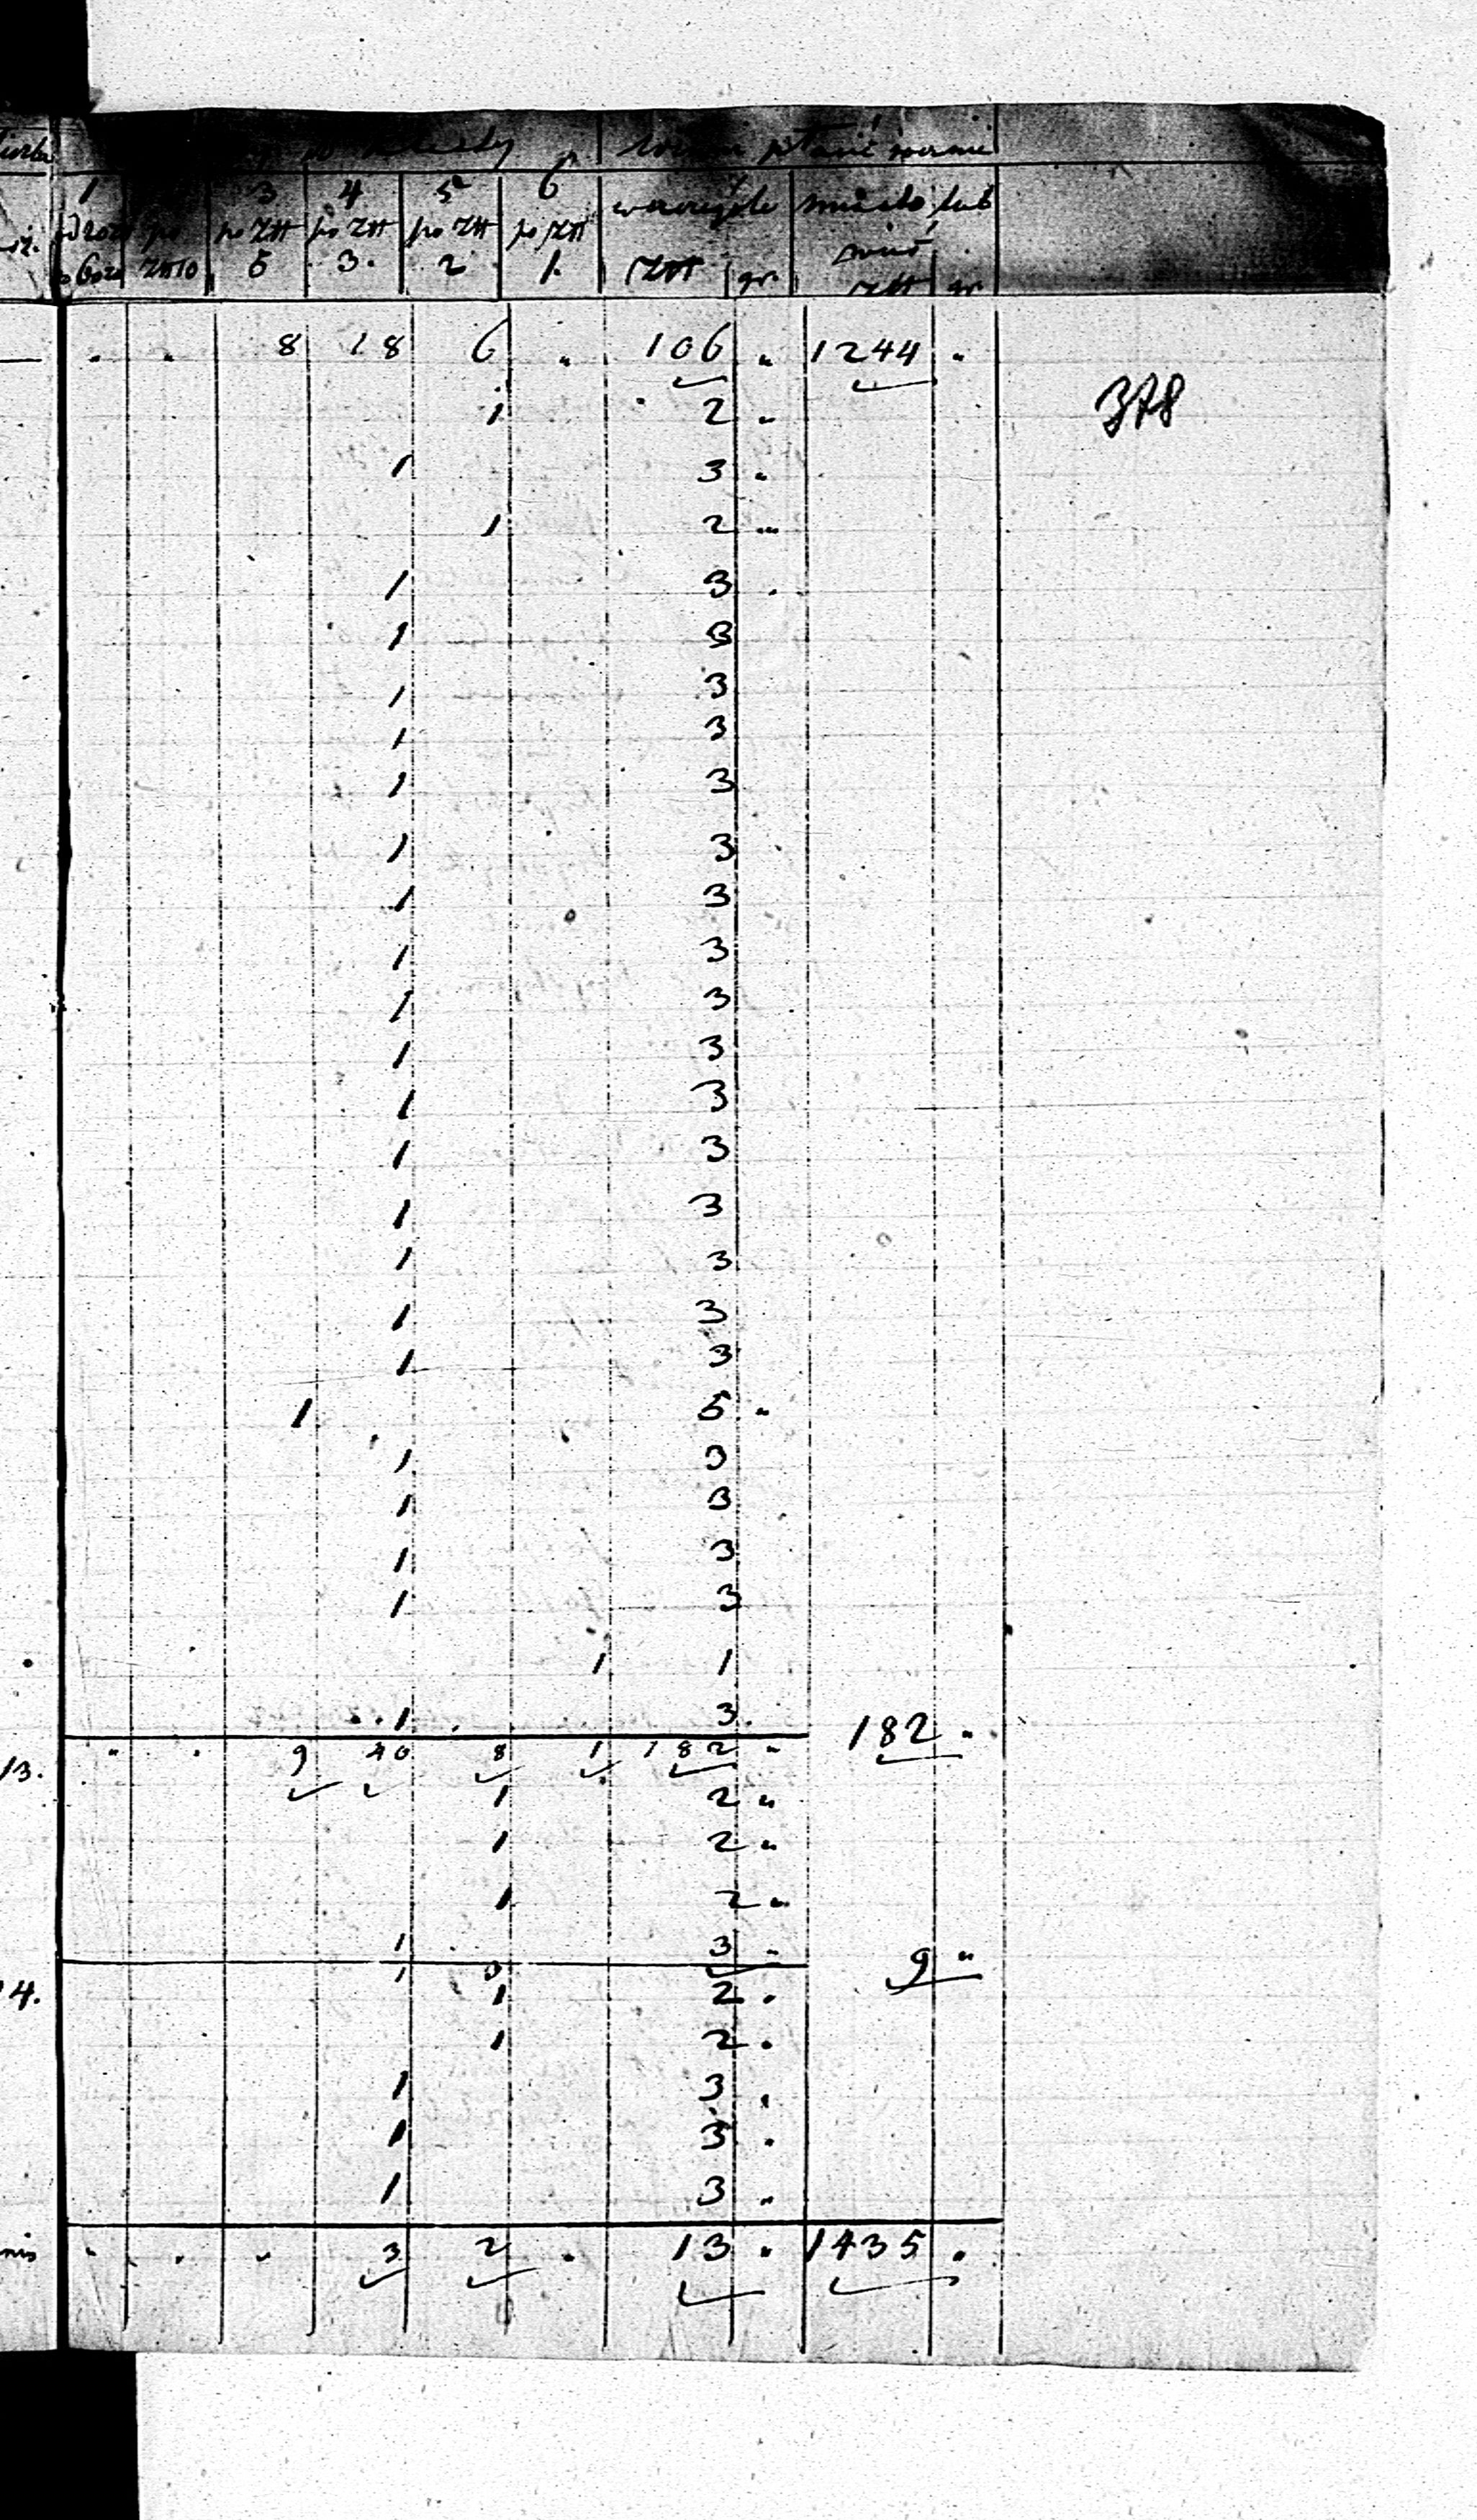 klasy
1 3 4 5 6
po po Złt po Złt po Złt po Złt
Zł 10 5 3. 2 1.
płacić
lub
Złt gr. złt gr.
" " 8 18 6 " 106 " 1244 "
378
1 2 "
1 3 "
1 2 "
1 3 .
1 3
1 3
1 3
1 3
1 3
1 3
1 3
1 3
1 3
1 3
1 3
1 3
1 3
1 3
1 3
1 5 "
1 3
1 3
1 3
1 3
1 1
1 3 .
182 "
13. " " 9 40 8 1 182 "
1 2 "
1 2 "
1 2 "
1 3 "
9 "
14. 1 3
1 2 .
1 2 .
1 3 .
1 3 .
1 3 "
" " " 3 2 . 13 " 1435 .